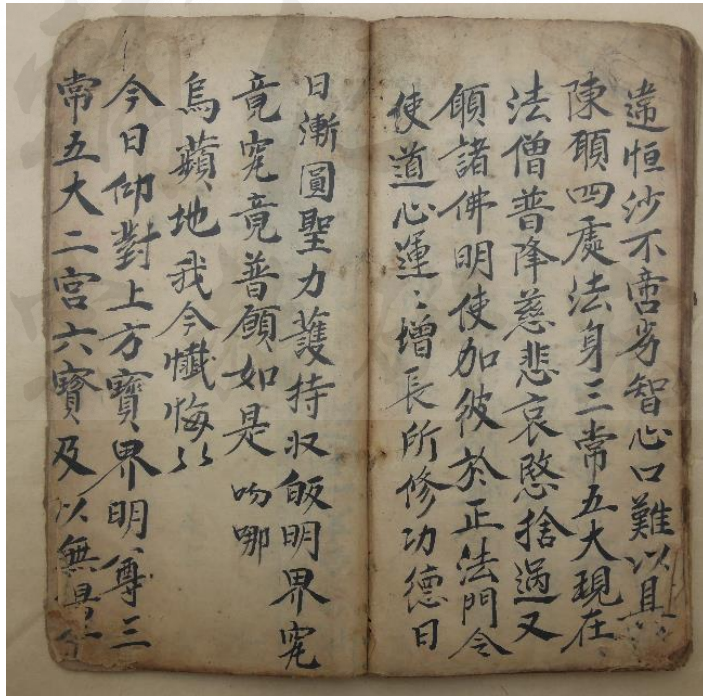 違恒沙不啻劣智心口難以具
陳願四處法身三常五大現在
法僧普降慈悲哀愍捨過又
願諸佛明使加彼於正法門令
使道心運〻增長所修功德日
日漸圓聖力護持収皈明界究
竟究竟普願如是吻哪
烏蘋地我今懺悔以
今日仰對上方寶界明尊三
常五大二宫六寳及以無